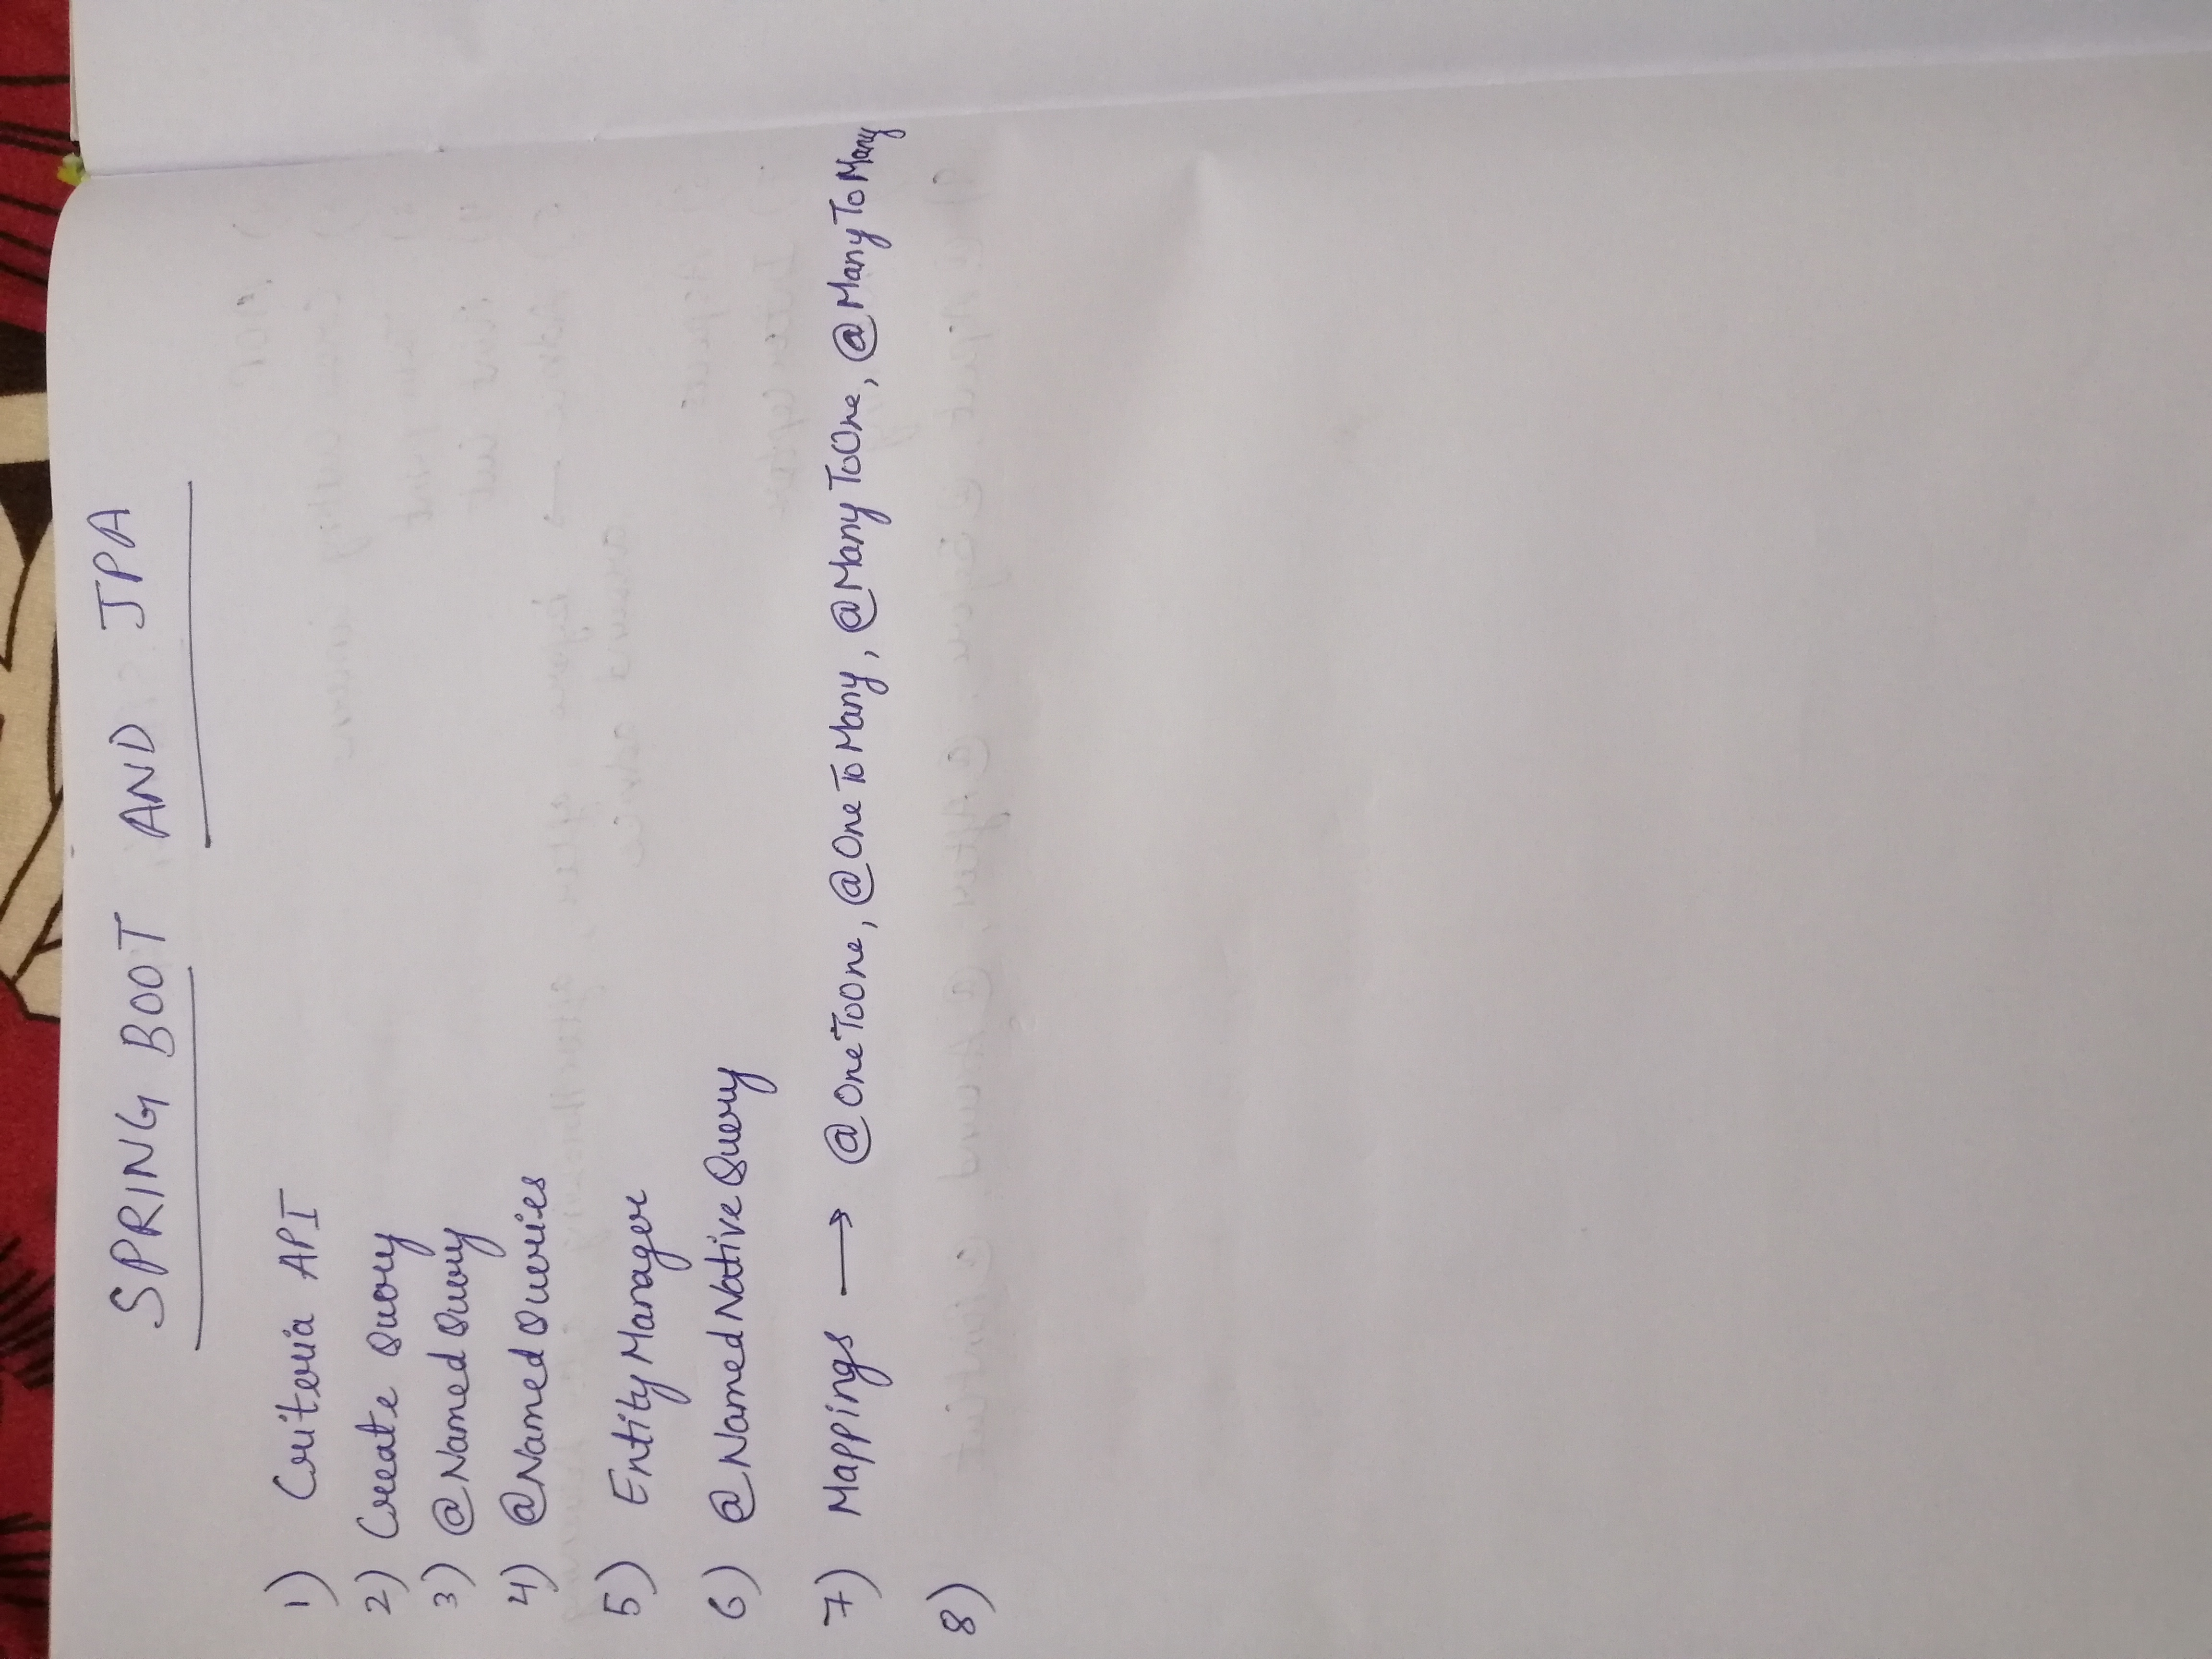 SPRING BOOT AND JPA
1) Criteria API
2) Create Query
3) @NamedQuery
4) @NamedQueries
5) EntityManager
6) @NamedNativeQuery
7) Mappings → @OneToOne, @OneToMany, @ManyToOne, @ManyToMany
8)